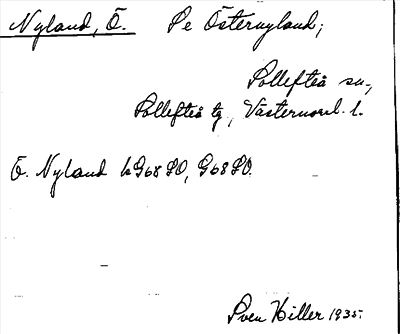 Nyland, Ö. Se Östernyland;
Sollefteå sn.,
Sollefteå tg., Västernorrl. l.
Ö. Nyland hG68SO, G68SO.
Sven Hiller 1935.